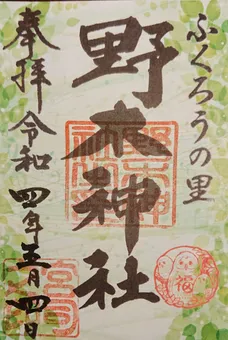 ふくろうの里
野木神社
奉拝 令和四年五月四日
福